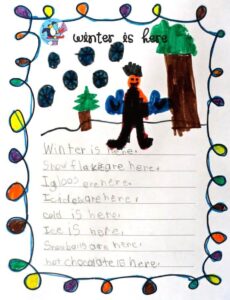 winter is here
Winter is here.
Snowflakes are here.
Igloos are here.
Icicles are here.
cold is here.
Ice is here.
Snowballs are here.
hot chocolate is here.